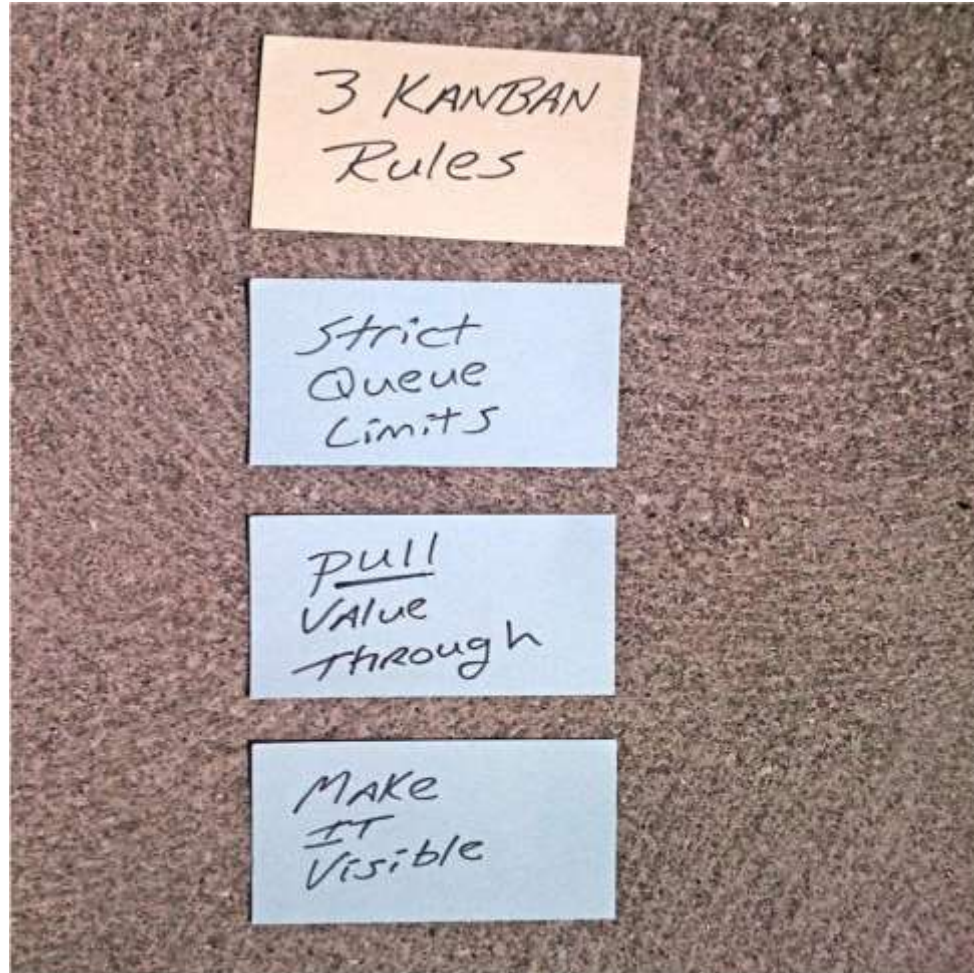 3 KANBAN
Rules
Strict
Queue
Limits
Pull
VAlue
THROugh
MAKe
IT
Visible